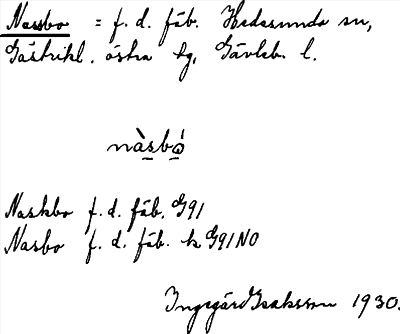 Nassbo = f. d. fäb. Hedesunda sn,
Gästrikl. östra tg, Gävleb. l.
nàsbó
Naskbo f. d. fäb. G91
Nasbo f. d. fäb. k G91NO
Ingegärd Isaksson 1930.